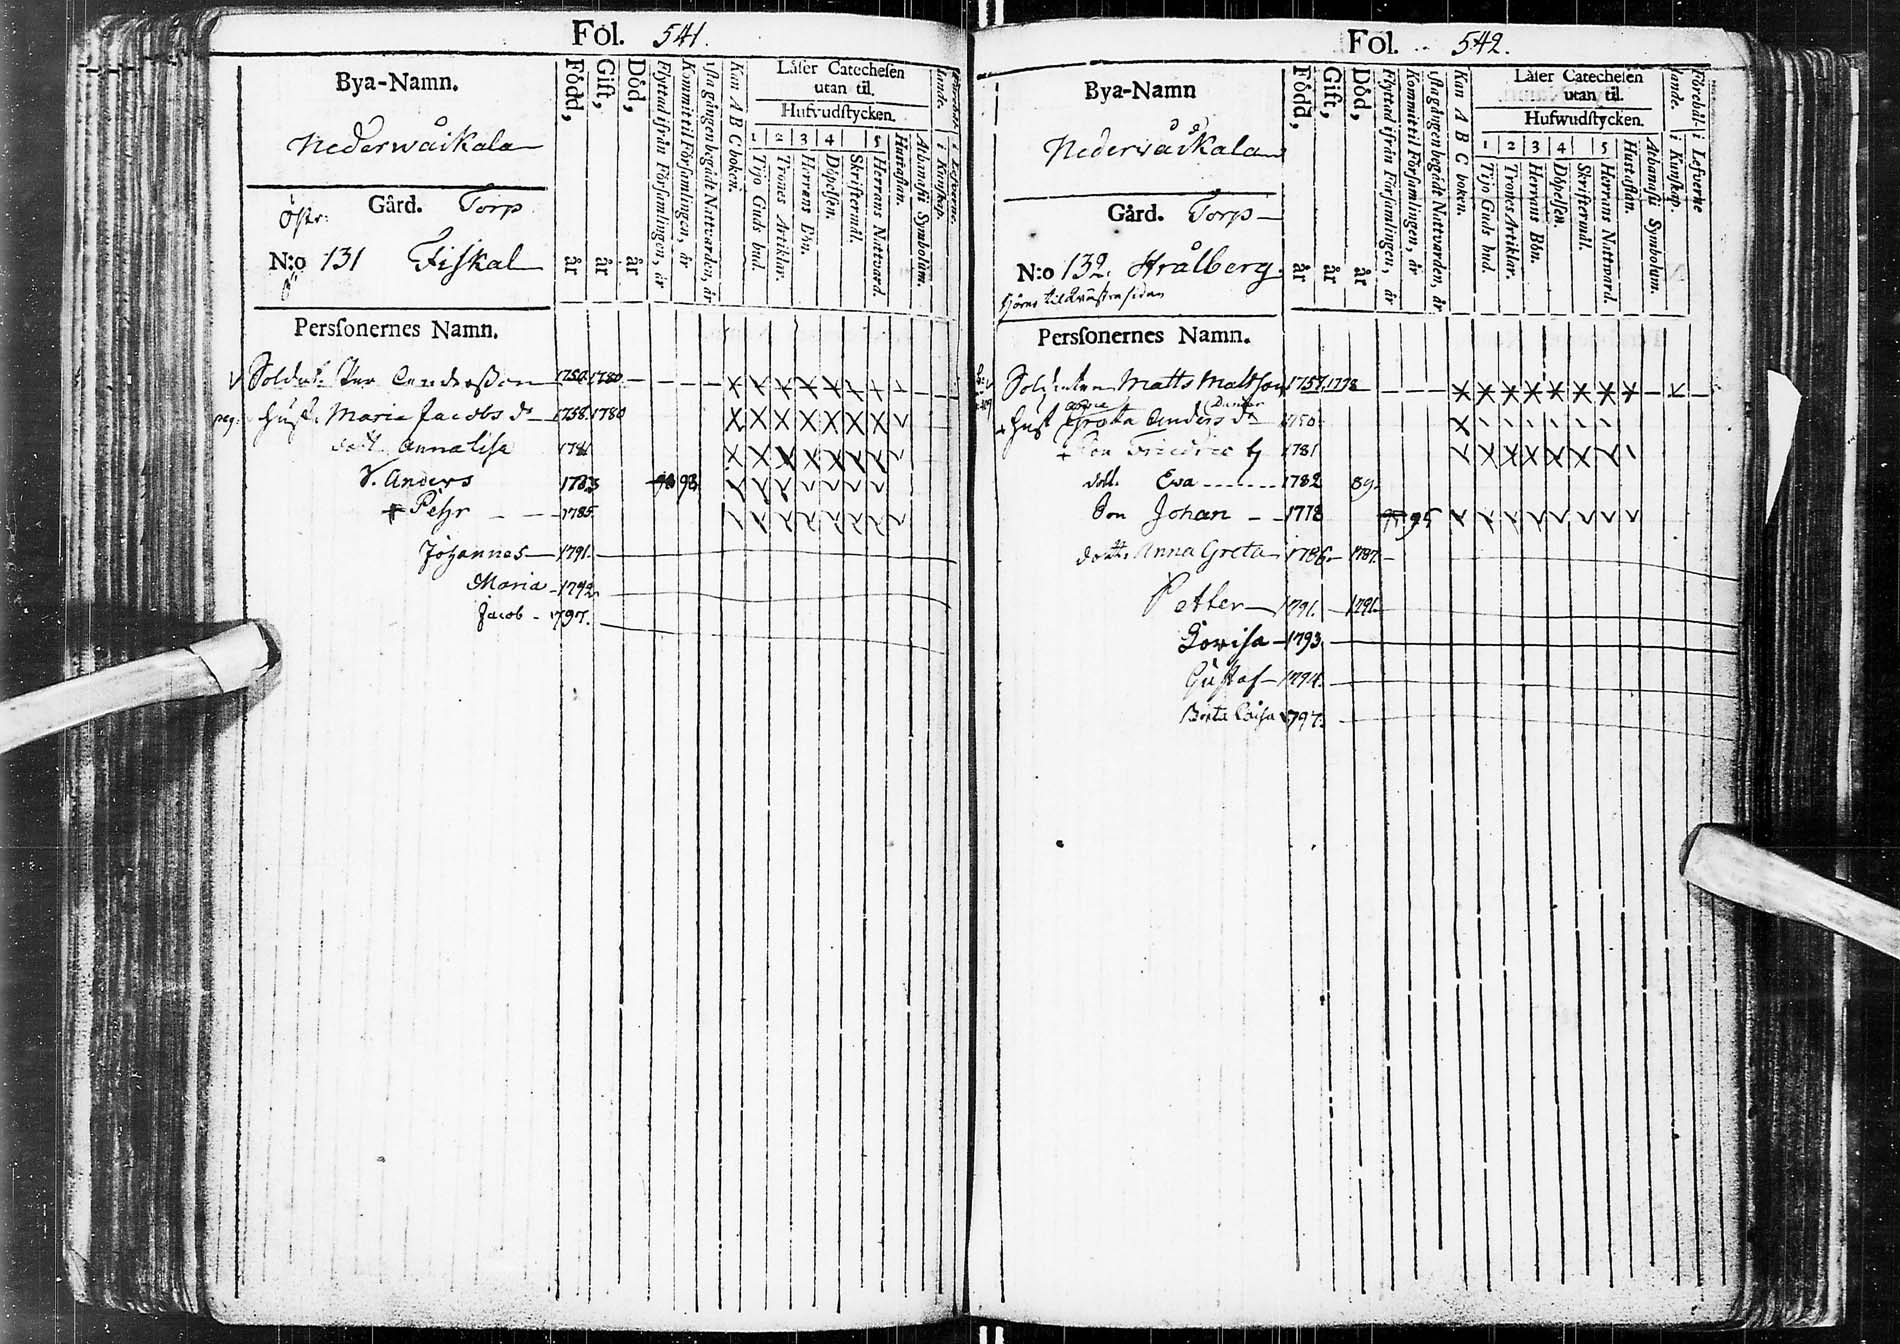 Fol. 541.
Bya-Namn.
Nederwåikala
Östr:
Gård. Torp
N:o 131 Fiskal
Född, år
Gift, år
Död, år
Flyttad ifrån Församlingen, år
Kommit til Församlingen, år
1sta gången begådt Nattvarden, år
Kan A B C boken.
Låser Catechesen
utan til.
Hufvudstycken.
1 2 3 4 5
Tijo Guds bud.
Trones Artiklar.
Herrans Bön.
Döpelsen.
Skriftermål.
Herrans Nattvard.
Hustaflan.
Athanasii Symbolum.
i Kunskap.
i Lefverne.
Persfonernes Namn.
Soldat. Per Andersson 1750 1780
Hust. Maria Jacobs dr 1758. 1780
dott Anna Lisa 1781
S. Anders 1783 98
+ Pehr 1785.
Johannes 1791.
Maria 1792
Jacob 1797.
Fol. 542.
Bya-Namn
Nederwåikala
Gård. Torp
N:o 132. Strålberg
Född, år
Gift, år
Död, år
Flyttad ifrån Församlingen, år
Kommit til Församlingen, år
1sta gången begådt Nattvarden, år
Kan A B C boken.
Låser Catechesen
utan til.
Hufwudstycken.
1 2 3 4 5
Tijo Guds bud.
Trones Artiklar.
Herrans Bön.
Döpelsen.
Skriftermål.
Herrans Nattward.
Hustaflan.
Athanasii Symbolum.
i Kunskap.
Förehål- i Lefverne
Persfonernes Namn.
Soldaten Matts Mattson 1757. 1778
Hust Greta Anders dr 1750
+ Son 1781
dott. Ewa 1782 89.
Son Johan 1778 95
dott. Anna Greta 1786 1787.
Petter 1791. 1791.
Lovisa 1793.
Gustaf 1794.
Beata Caisa 1797.